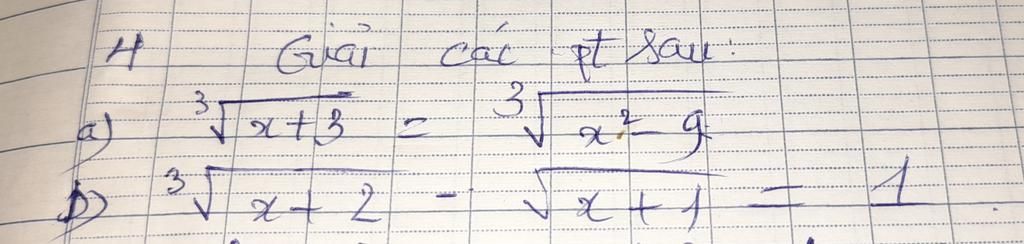 4 Giải các pt sau:
a) ∛(x+3) = ∛(x²-9)
b) ∛(x+2) - √(x+1) = 1